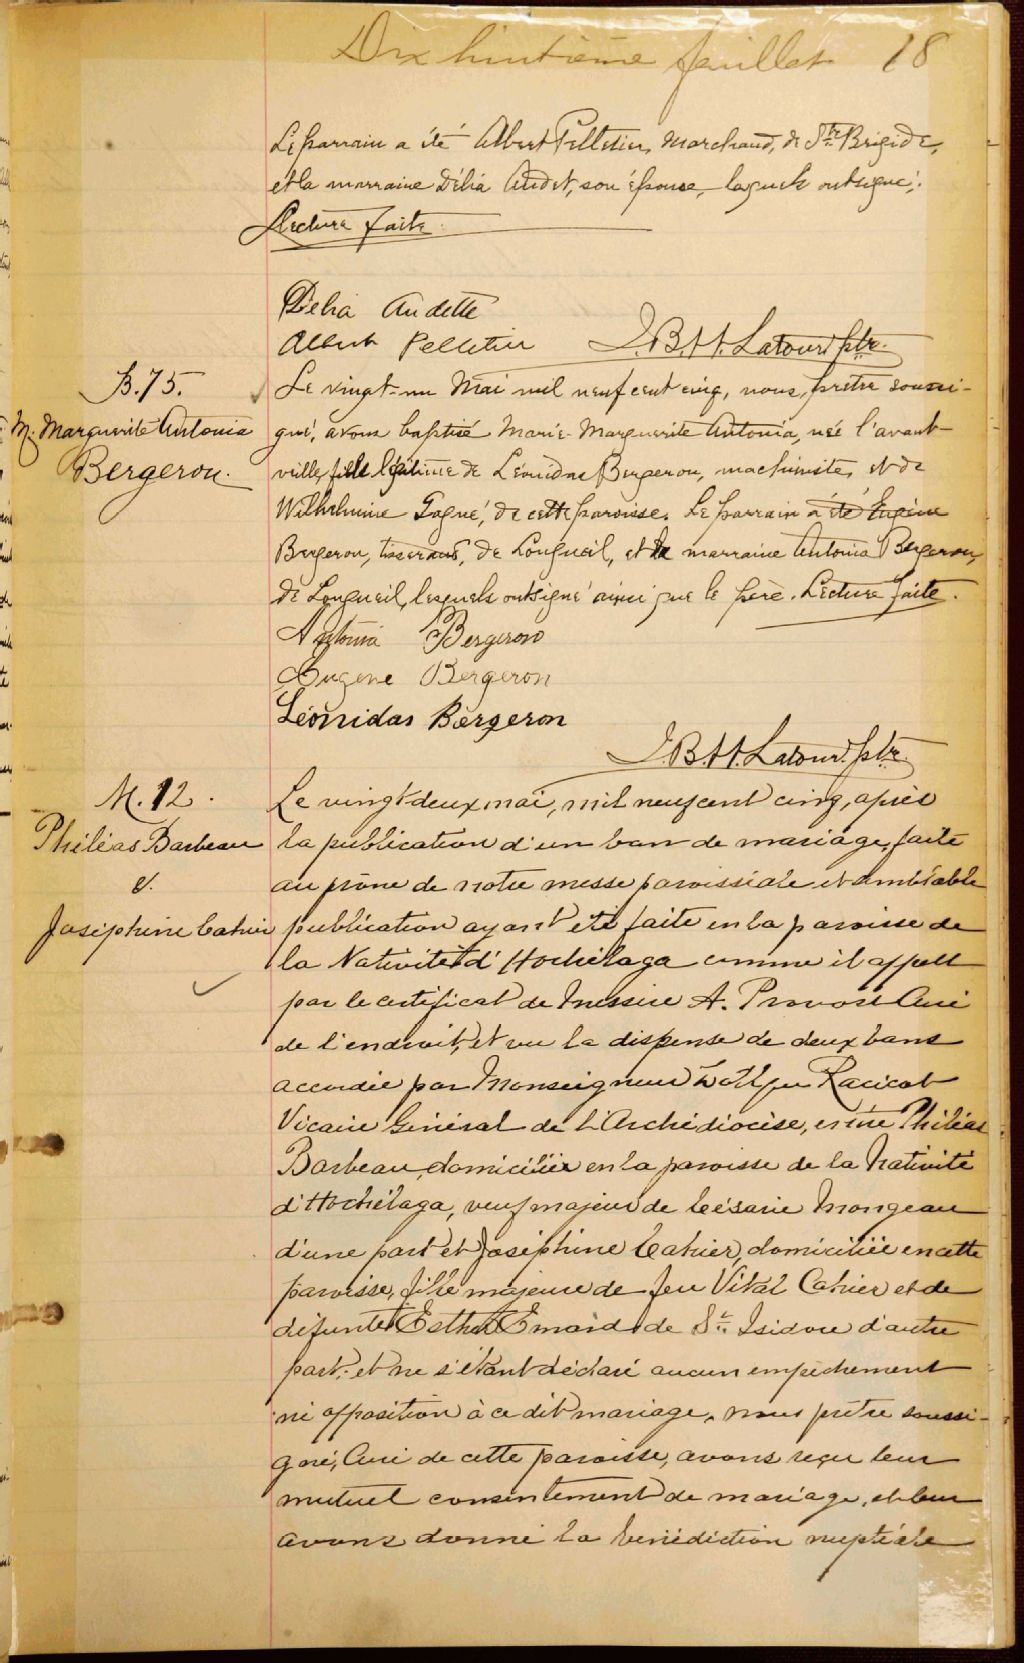 Dix huitième feuillet 18
Le parrain a été Albert Pelletier, marchand, de Ste Brigide,
et la marraine Délia Audet, son épouse, lesquels ont signé.
Lecture faite
Delia Audette
Albert Pelletier J.B.H. Latour ptr.
B. 75.
M. Marguerite Antonia
Bergeron.
Le vingt-un Mai mil neuf cent cinq, nous, prêtre soussi-
gné, avons baptisé Marie-Marguerite Antonia, née l'avant-
veille, fille légitime de Léonidas Bergeron, machiniste, et de
Wilhelmine Gagné, de cette paroisse. Le parrain a été Eugène
Bergeron, tisserand, de Longueil, et la marraine Antonia Bergeron,
de Longueil, lesquels ont signé ainsi que le père. Lecture faite.
Antonia Bergeron
Eugene Bergeron
Léonidas Bergeron
J.B.H. Latour ptr.
M. 12.
Philéas Barbeau
&
Joséphine Cahier
Le vingt-deux mai, mil neuf cent cinq, après
la publication d'un ban de mariage, faite
au prône de notre messe paroissiale et semblable
publication ayant été faite en la paroisse de
la Nativité d'Hochelaga comme il appert
par le certificat de Messire A. Provost Curé
de l'endroit, et vu la dispense de deux bans
accordée par Monseigneur Racicot
Vicaire Général de l'Archédiocèse, entre Philéas
Barbeau, domicilié en la paroisse de la Nativité
d'Hochélaga, veuf majeur de Césarie Mongeau
d'une part et Joséphine Cahier, domiciliée en cette
paroisse, fille majeure de feu Vital Cahier et de
défunte Esther Emard de St. Isidore d'autre
part; et ne s'étant déclaré aucun empêchement
ni opposition à ce dit mariage, nous prêtre soussi-
gné, Curé de cette paroisse, avons reçu leur
mutuel consentement de mariage, et leur
avons donné la bénédiction nuptiale